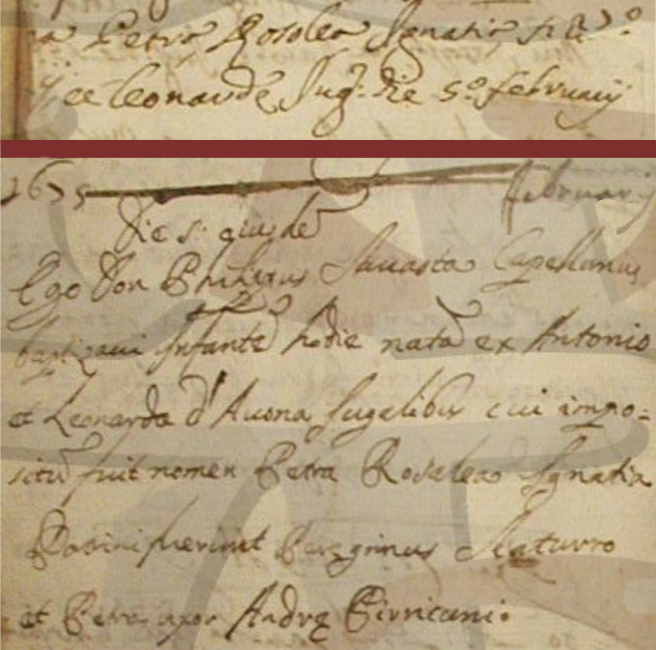 Petra Rosolea Ignatia
et Leonardę Jug: die 5º februarij
1675 februarij
Die 5: eiusdē
Ego Don Philippus Capellanus
baptizaui Infantē hodie natā ex Antonio
et Leonarda d'Auona Jugalibus cui impo=
sitū fuit nomen Petra Rosalea Ignatia
Patrini fuerunt Peregrinus Scaturro
et Petra uxor Andrę Pirricuni.